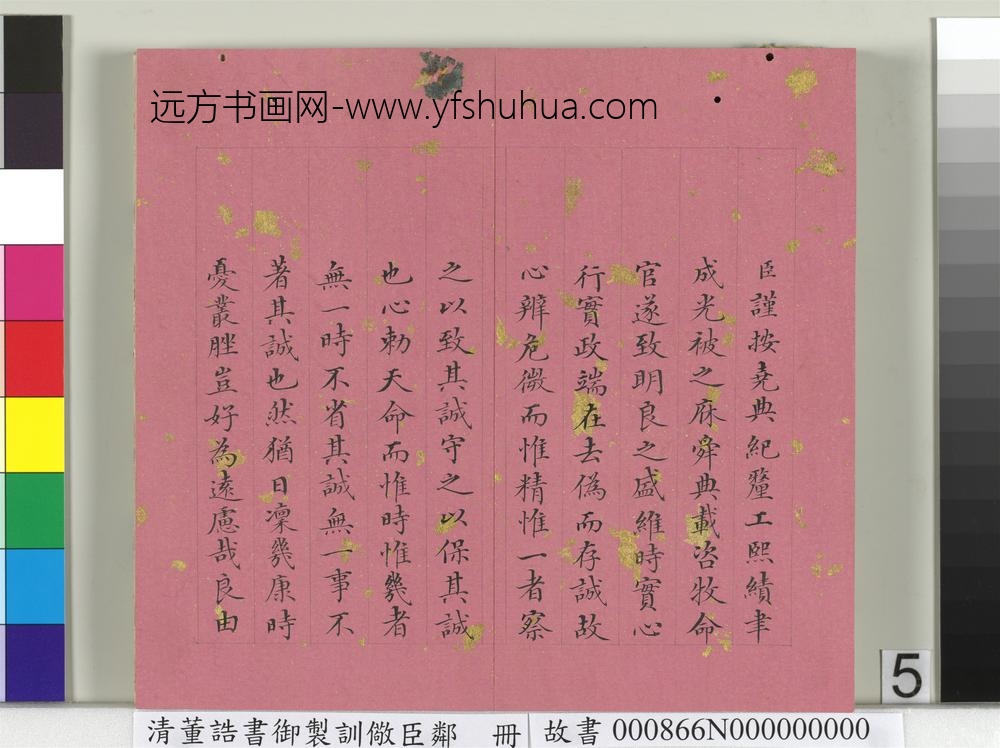 远方书画网-www.yfshuhua.com
臣謹按堯典紀釐工熙績聿
成光被之庥舜典載咨牧命
官遂致明良之盛維時實心
行實政端在去偽而存誠故
心辨危微而惟精惟一者察
之以致其誠守之以保其誠
也心勅天命而惟時惟幾者
無一時不省其誠無一事不
著其誠也然猶日凜幾康時
憂叢脞豈好為遠慮哉良由
5
清董誥書御製訓儆臣鄰 冊 故書 000866N000000000